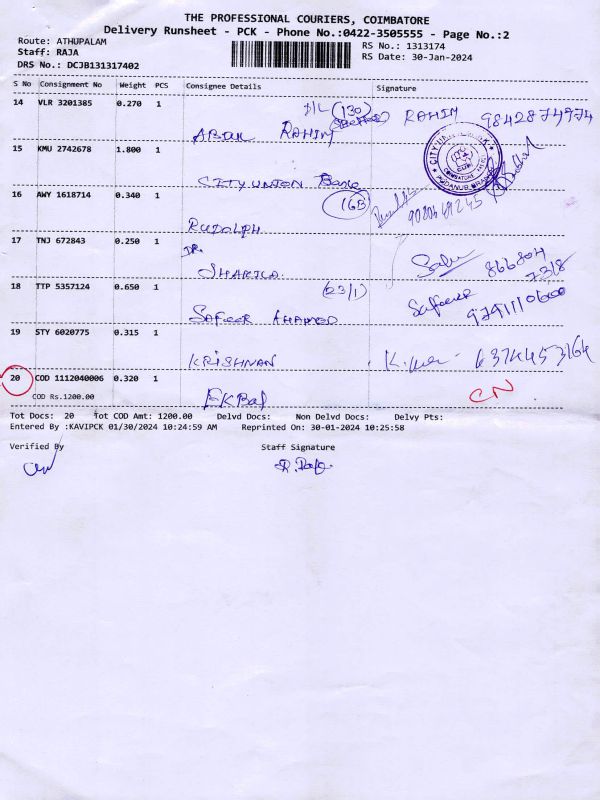 THE PROFESSIONAL COURIERS, COIMBATORE
Delivery Runsheet - PCK - Phone No.:0422-3505555 - Page No.:2
Route: ATHUPALAM
RS No.: 1313174
Staff: RAJA
RS Date: 30-Jan-2024
DRS No.: DCJB131317402
S No Consignment No Weight PCS Consignee Details Signature
14 VLR 3201385 0.270 1
(130)
ABDUL RAHIM
RAHIM 9842874974
15 KMU 2742678 1.800 1
CITY UNION Bank
CITY UNION
COIMBATORE
PODANUR BRANCH
16 AWY 1618714 0.340 1
(16B)
RUDOLPH
17 TNJ 672843 0.250 1
DR.
SHARICA
866804
7318
18 TTP 5357124 0.650 1
(23/1)
SAFEER AHAMED
Safeer
19 STY 6020775 0.315 1
KRISHNAN
6374453164
20 COD 1112040006 0.320 1
CN
COD Rs.1200.00
Tot Docs: 20 Tot COD Amt: 1200.00 Delvd Docs: Non Delvd Docs: Delvy Pts:
Entered By :KAVIPCK 01/30/2024 10:24:59 AM Reprinted On: 30-01-2024 10:25:58
Verified By Staff Signature
R. Raja